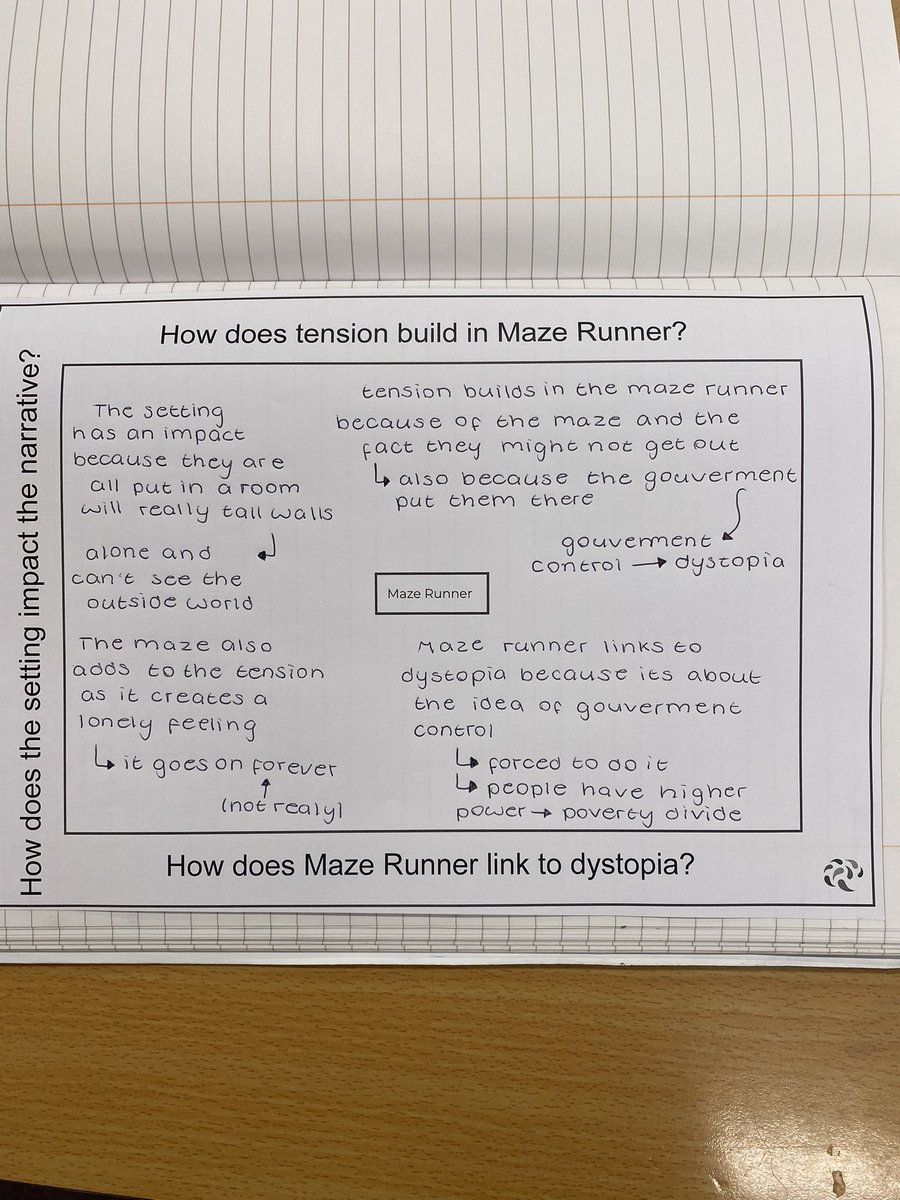 How does tension build in Maze Runner?
How does the setting impact the narrative?
The setting
has an impact
because they are
all put in a room
will really tall walls
alone and
can't see the
outside world
tension builds in the maze runner
because of the maze and the
fact they might not get out
↳ also because the gouverment
put them there
gouverment
control → dystopia
Maze Runner
The maze also
adds to the tension
as it creates a
lonely feeling
↳ it goes on forever
(not realy)
Maze runner links to
dystopia because its about
the idea of gouverment
control
↳ forced to do it
↳ people have higher
power → poverty divide
How does Maze Runner link to dystopia?